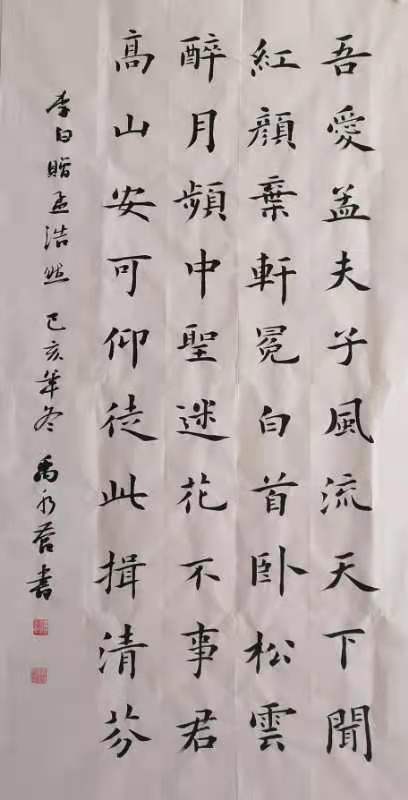 吾愛孟夫子風流天下聞
紅顔棄軒冕白首卧松雲
醉月頻中聖迷花不事君
髙山安可仰徒此揖清芬
李白贈孟浩然 己亥年冬 禹永書